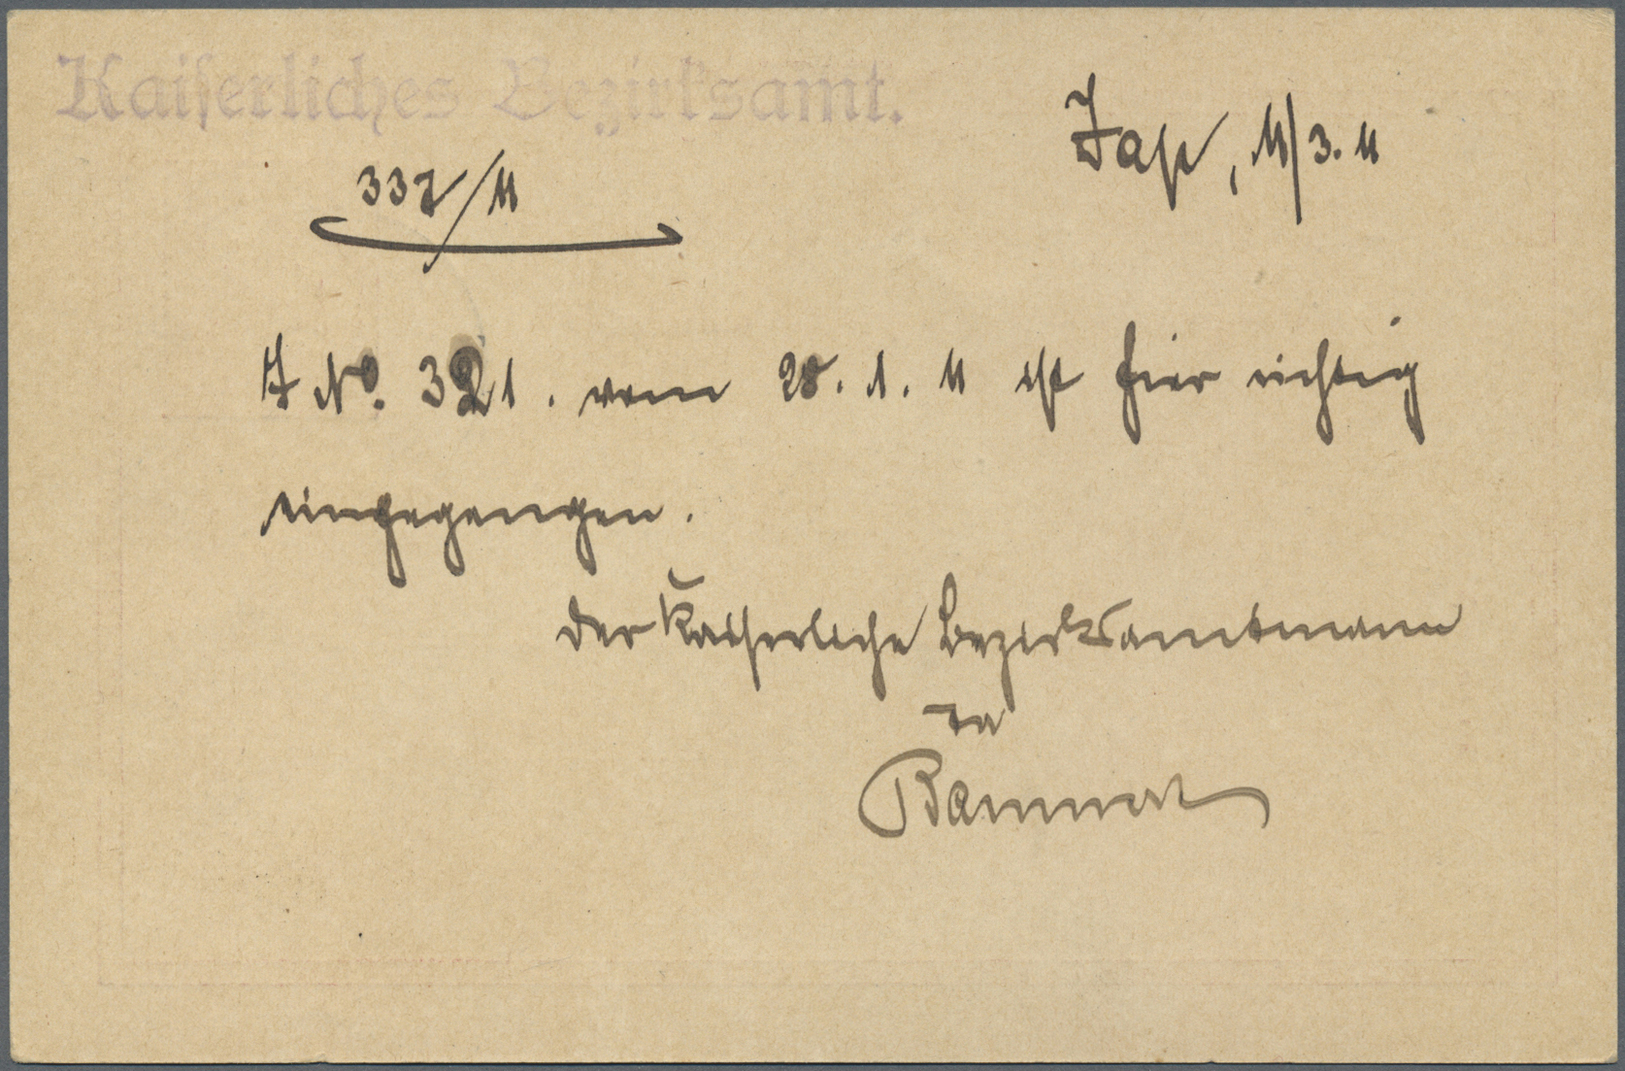 Kaiserliches Bezirksamt.
Jap, 11/3. 11
337/11
J No. 321. vom 20. 1. 11 ist hier richtig
eingegangen.
Der Kaiserliche Bezirksamtmann